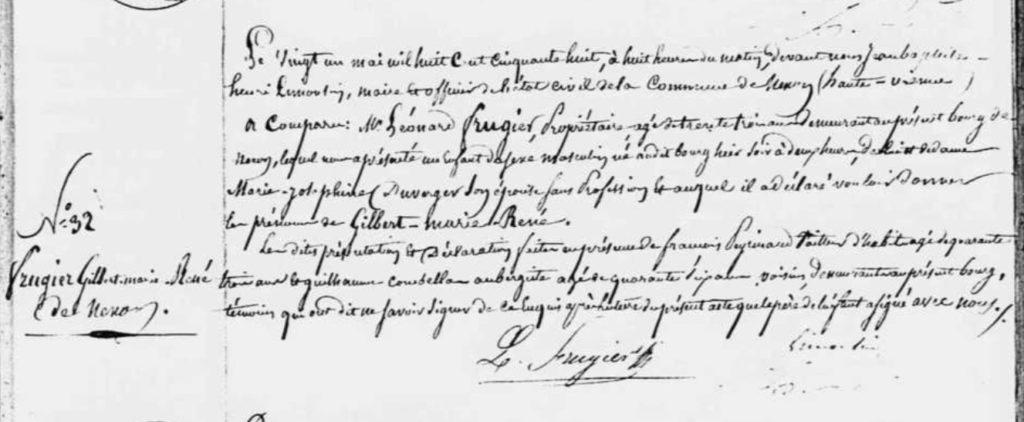 Le vingt un mai mil huit cent cinquante huit, à huit heures du matin, devant nous Jean baptiste
henri Limousin, maire et officier de l'état civil de la Commune de Nexon (haute-vienne)
a Comparu: Mr Léonard Frugier, Propriétaire agé de trente trois ans demeurant au présent bourg de
Nexon, lequel nous a présenté un Enfant du sexe masculin né au dit bourg hier soir à deux heures, de lui et de dame
Marie-Josephine Duverger son épouse sans Profession et auquel il a déclaré vouloir Donner
les prénoms de Gilbert-marie-René.
Les dites présentation et Déclaration faites en présence de francois tailleur d'habit agé de quarante
trois ans et guillaume aubergiste agé de quarante six ans voisins demeurant au présent bourg,
témoins qui ont dit ne savoir signer de ce requis après lecture du présent acte que le père de l'enfant a signé avec nous.
L. Frugier
Limousin
No 32
Frugier Gilbert-marie-René
de Nexon.